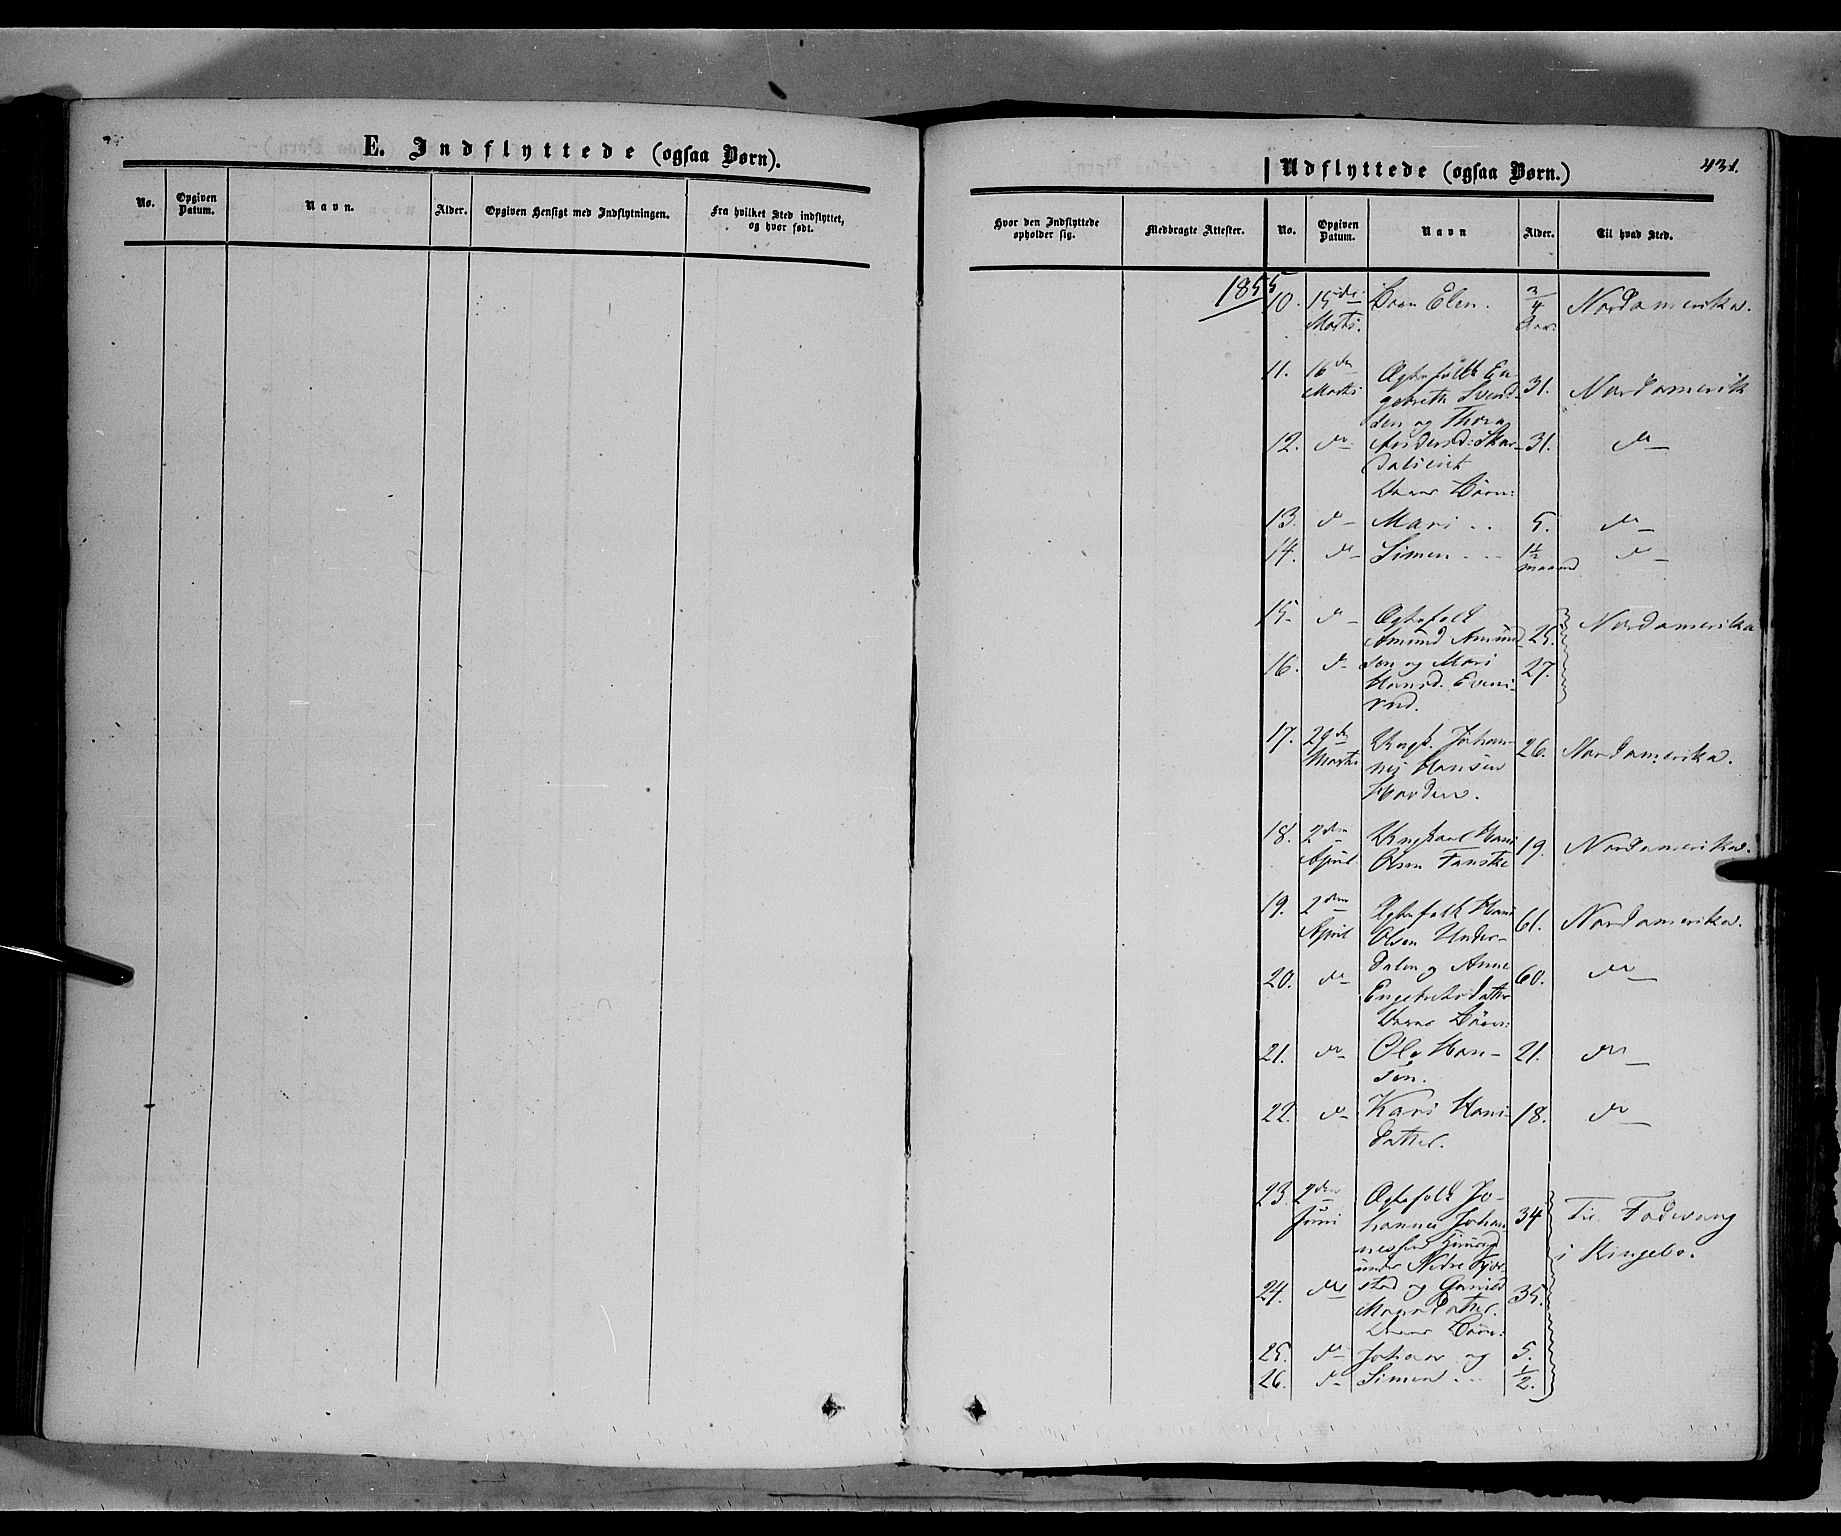 E. Indflyttede (ogsaa Børn).
No.
Opgiven Datum.
Navn.
Alder.
Opgiven Hensigt med Indflytningen.
Fra hvilket Sted indflyttet, og hvor født.
Udflyttede (ogsaa Børn.)
431.
Hvor den Indflyttede opholder sig.
Medbragte Attester.
No.
Opgiven Datum.
Navn
Alder.
Til hvad Sted.
1855
10. 15de Barn Elen. 3/4 Nordamerika.
Marts. Aar.
11. 16de Ægtefolk En-
Marts gebreth Svend- 31. Nordamerik
sen og Thora
12. do Andersd: Skar- 31. do
Deres Børn:
13. do Mari .. 5. do
14. do Simen .. 1½ do
maaned
15. do Ægtefolk Nordamerika
Amund Amund 25.
16. do sen og Mari 27.
Hansd. Eveni-
rud.
17. 29de Ungk. Johan- 26. Nordamerika.
Marts nes Hansen
18. 2den Ungkarl Hans 19. Nordamerika.
April Olsen Fanske
19. 2den Ægtefolk Hans 61. Nordamerika.
April Olsen Under-
20. do dalen og Anne 60. do
Engebretsdatter
Deres Børn:
21. do Ole Han- 21. do
sen.
22. do Kari Hans- 18. do
datter.
23. 2den Ægtefolk Jo- Til Fodvang
Juni hannes Johan- 34 i Ringebo.
nessen
under Nedre
24. do stad og Gunild 35.
datter.
Deres Børn:
25. do Johans og 5.
26. do Simen .. 1/2.